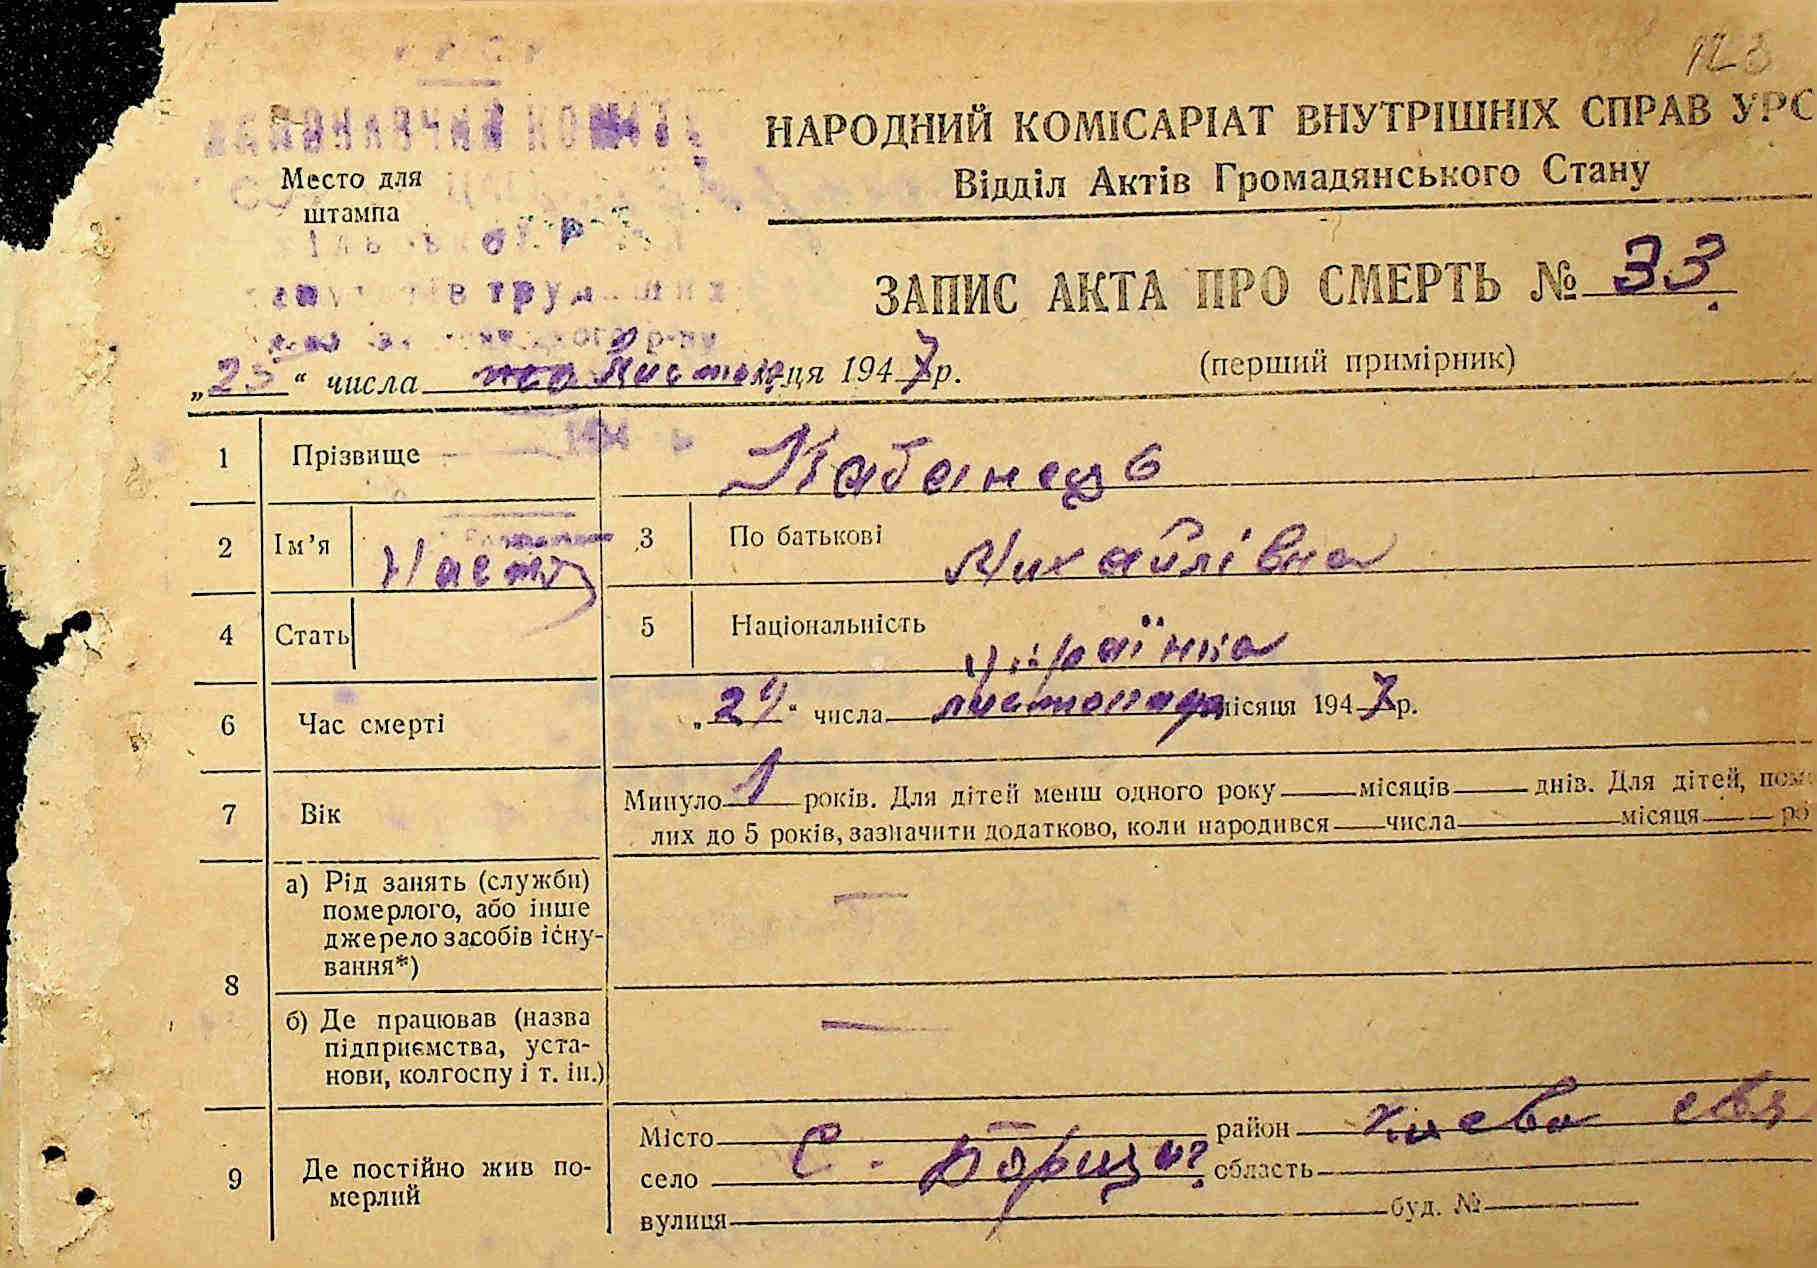 123
НАРОДНИЙ КОМІСАРІАТ ВНУТРІШНІХ СПРАВ УРС
Відділ Актів Громадянського Стану
Место для
штампа
ЗАПИС АКТА ПРО СМЕРТЬ № 33
„25“ числа листопа ця 1947 р.
(перший примірник)
1 Прізвище Кабанець
2 Ім’я Настя 3 По батькові Михайлівна
4 Стать 5 Національність українка
6 Час смерті „24“ числа листопада місяця 1947 р.
7 Вік Минуло 1 років. Для дітей менш одного року місяців днів. Для дітей, пом
лих до 5 років, зазначити додатково, коли народився числа місяця ро
8 а) Рід занять (служби)
померлого, або інше
джерело засобів існу-
вання*) —
б) Де працював (назва
підприємства, уста-
нови, колгоспу і т. ін.) —
9 Де постійно жив по-
мерлий
Місто район
село С. область
вулиця буд. №